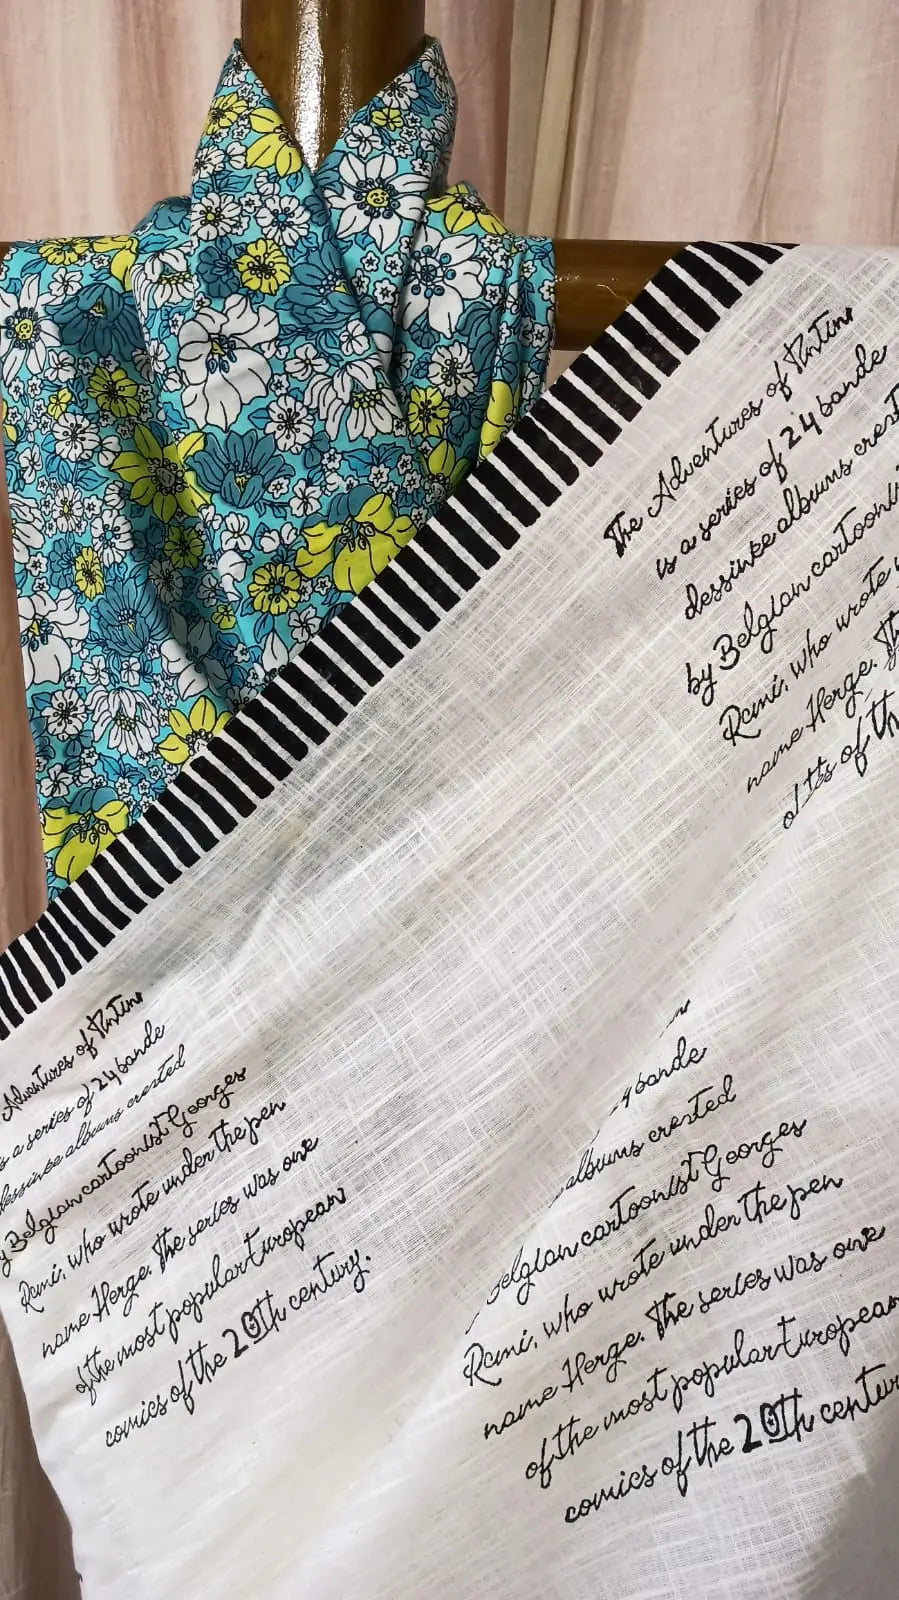 The Adventures of Tintin
is a series of 24 bande
dessinee albums creat
by Belgian cartooni
Remi, who wrote
name Herge. Th
of the
Adventures of Tintin
is a series of 24 bande
dessinee albums created
y Belgian cartoonist Georges
Remi, who wrote under the pen
name Herge. The series was one
of the most popular European
comics of the 20th century.
24 bande
albums created
Belgian cartoonist Georges
Remi, who wrote under the pen
name Herge. The series was one
of the most popular European
comics of the 20th centur